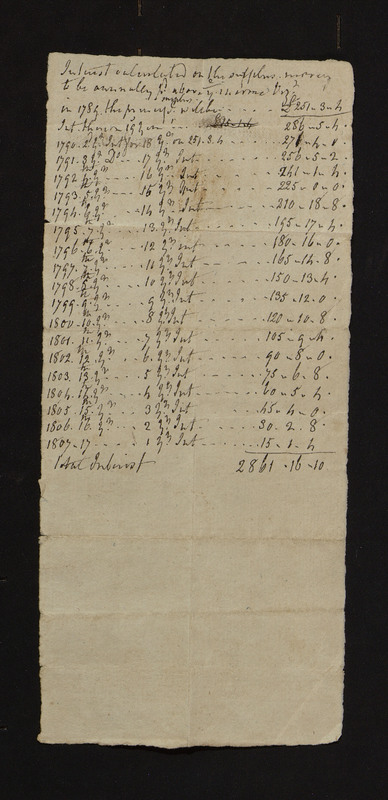 Interest calculated on the surplus money
to be annually
in 1789 the surplus princip.l will be - - - - £251-3-4
Int. thereon 19 yrs - - - 286-5-4
1790. 2d yr Int for 18 yrs on 251.3.4 271-4-0
1791. 3d yr Do - - 17 yrs Int - - - 256-5-2
1792 4th yr - - - - 16 yrs Int - - - 241-1-4
1793. 5th yr - - - - 15 yrs Int - - - 225-0-0
1794. 6th yr - - - - 14 yrs Int - - - 210-18-8
1795. 7th yr - - - - 13 yrs Int - - - 195-17-4
1796. 8th yr - - - - 12 yrs Int - - - 180-16-0
1797. yr - - - - 11 yrs Int - - - 165-14-8
1798. yr - - - - 10 yrs Int - - - 150-13-4
1799. 9th yr - - - - 9 yrs Int - - - 135-12.0
1800. 10th yr - - - - 8 yrs Int - - - 120-10-8
1801. 11th yr - - - - 7 yrs Int - - - 105-9-4
1802. 12th yr - - - - 6 yrs Int - - - 90-8-0
1803. 13th yr - - - - 5 yrs Int - - - 75-6-8
1804. yr - - - - 4 yrs Int - - - 60-5-4
1805. 15th yr - - - - 3 yrs Int - - - 45-4-0
1806. 16th yr - - - - 2 yrs Int - - - 30-2-8
1807-17 - - - - 1 yrs Int - - - 15-1-4
Total Interest 2861-16-10